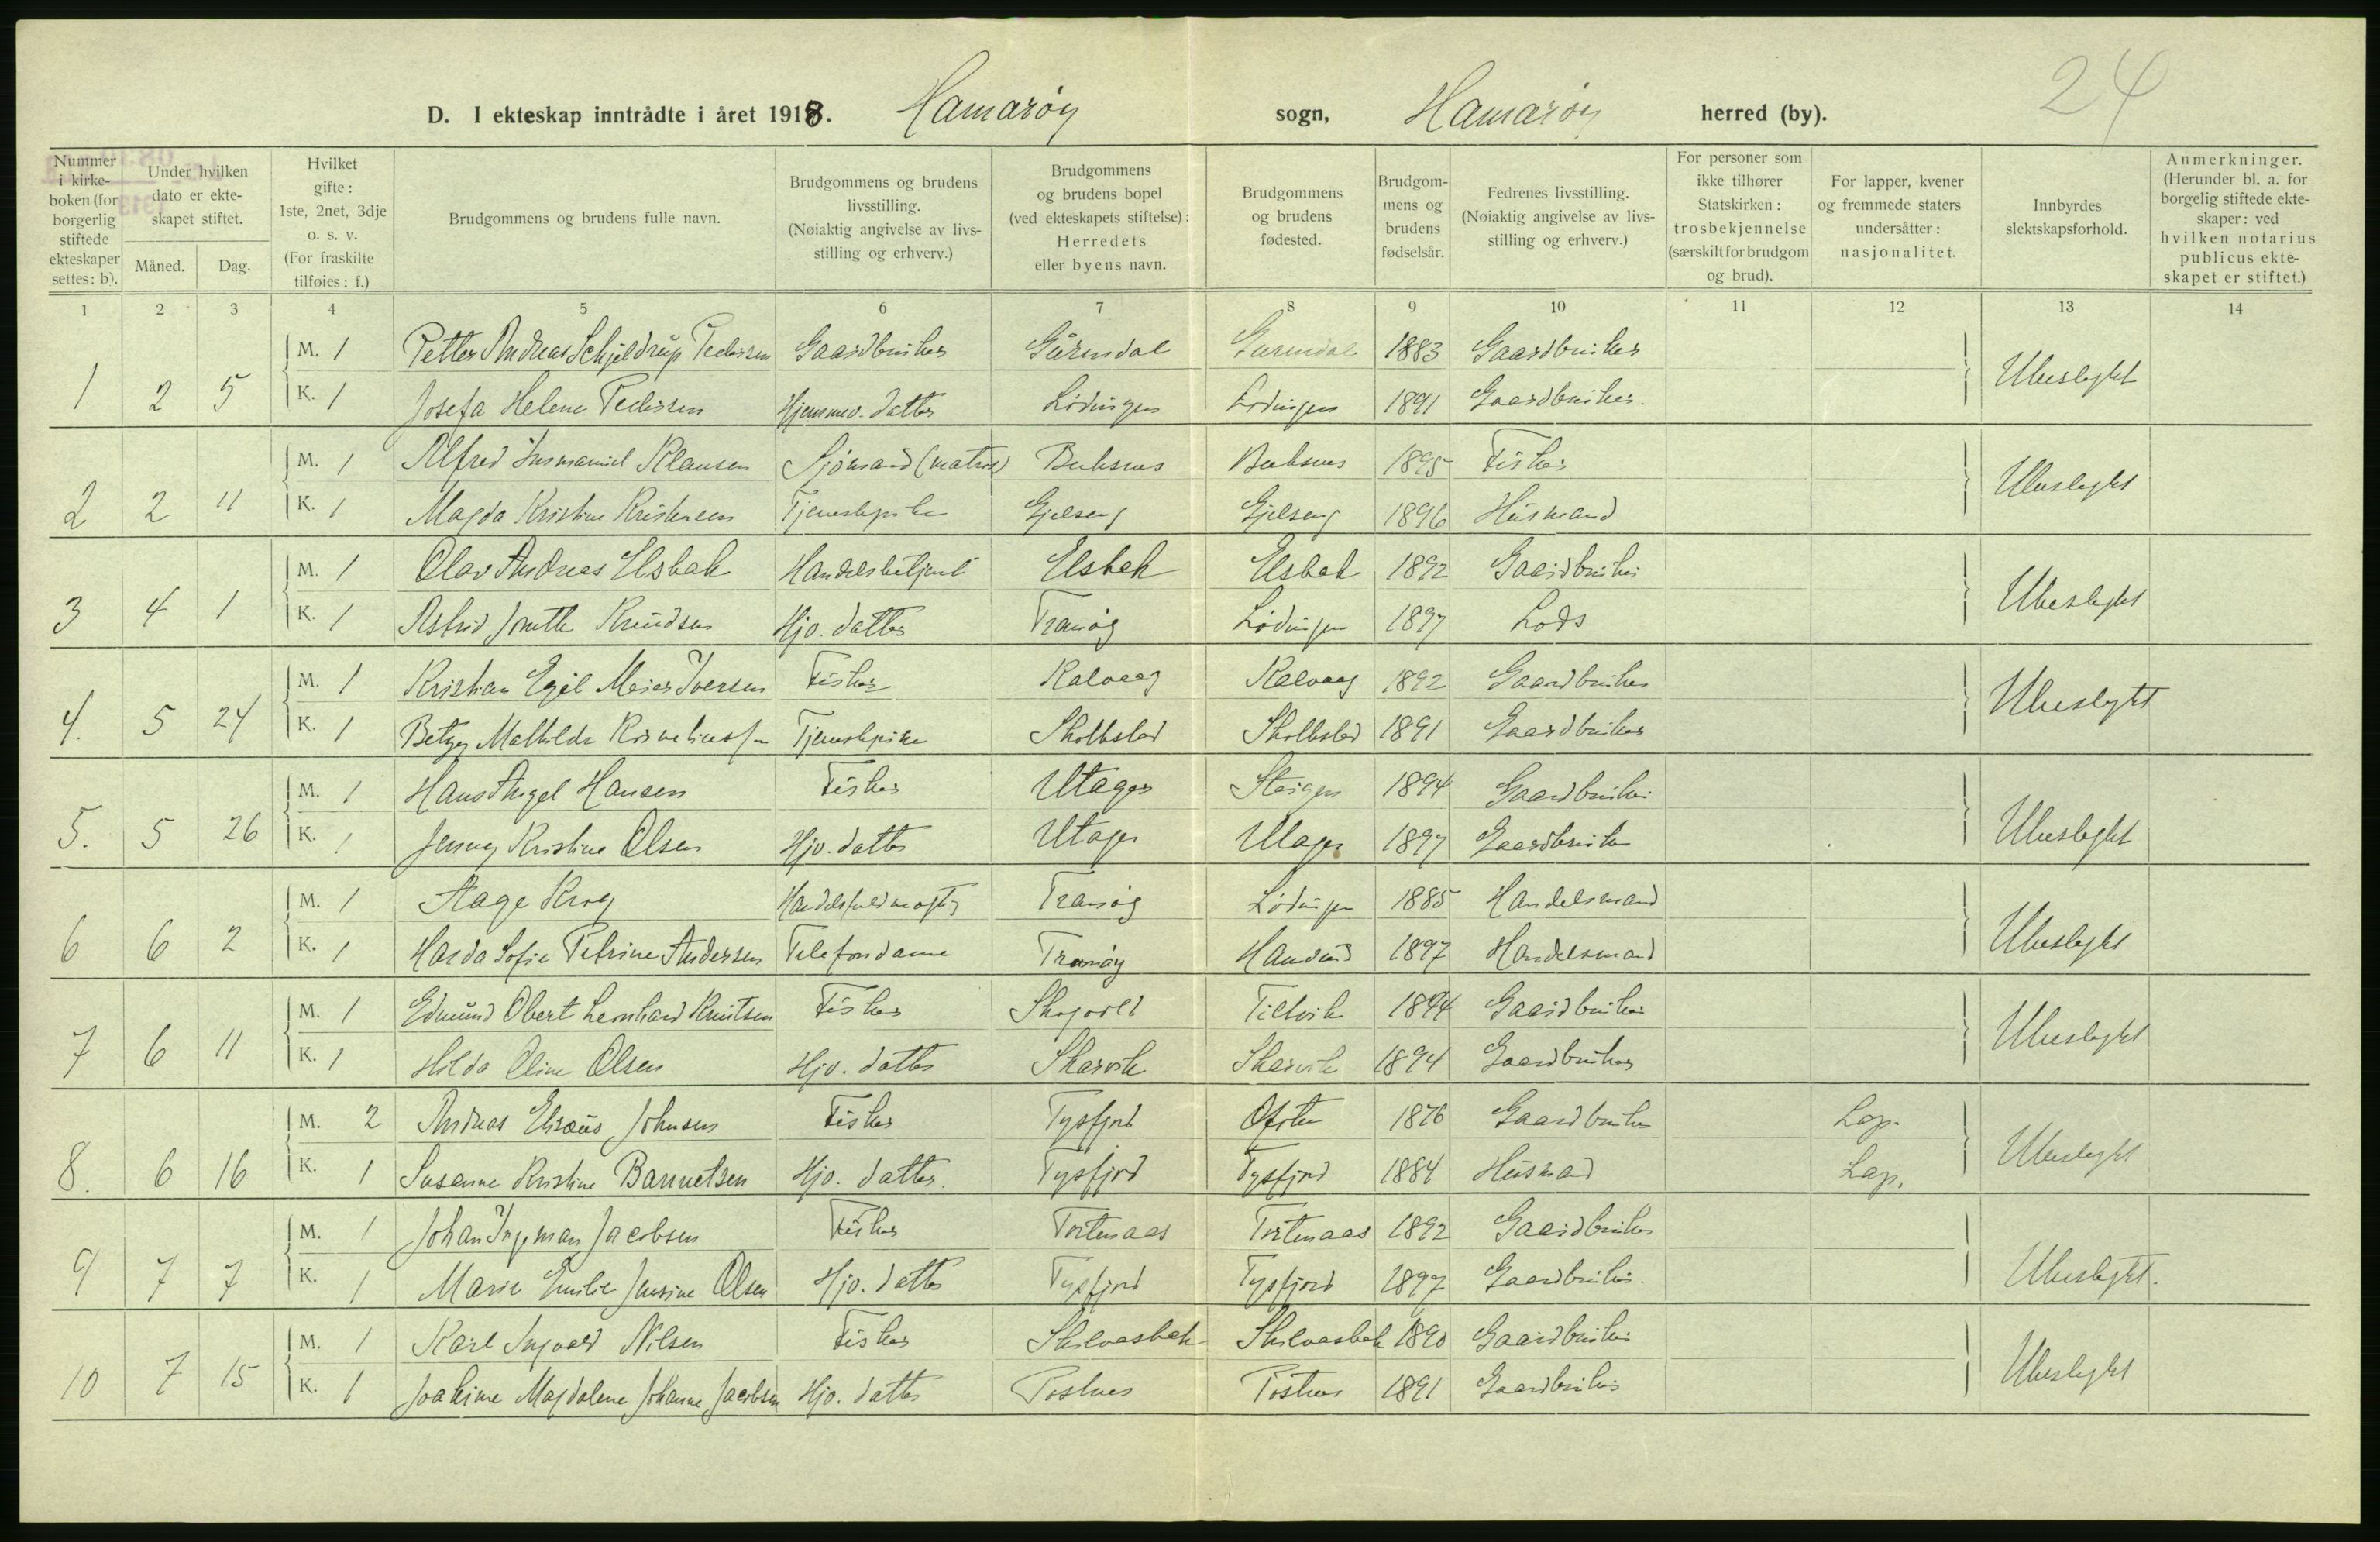 24
D. I ekteskap inntrådte i året 1918. Hamarøy sogn, Hamarøy herred (by).
Nummer i kirkeboken (for borgerlig stiftede ekteskaper settes: b).
Under hvilken dato er ekteskapet stiftet.
Måned.
Dag.
Hvilket gifte: 1ste, 2net, 3dje o. s. v. (For fraskilte tilføies: f.)
Brudgommens og brudens fulle navn.
Brudgommens og brudens livsstilling. (Nøiaktig angivelse av livsstilling og erhverv.)
Brudgommens og brudens bopel (ved ekteskapets stiftelse): Herredets eller byens navn.
Brudgommens og brudens fødested.
Brudgommens og brudens fødselsår.
Fedrenes livsstilling. (Nøiaktig angivelse av livsstilling og erhverv.)
For personer som ikke tilhører Statskirken: trosbekjennelse (særskilt for brudgom og brud).
For lapper, kvener og fremmede staters undersåtter: nasjonalitet.
Innbyrdes slektskapsforhold.
Anmerkninger. (Herunder bl. a. for borgelig stiftede ekteskaper: ved hvilken notarius publicus ekteskapet er stiftet.)
1 2 3 4 5 6 7 8 9 10 11 12 13 14
M. 1 Petter Andreas Schjeldrup Pedersen Gaardbruker 1883 Gaardbruker
1 2 5 K. 1 Josefa Helene Pedersen Hjemmev. datter Lödingen Lödingen 1891 Gaardbruker. Ubeslegtet
M. 1 Alfred Immanuel Klausen Sjömand (matros) Buksnes Buksnes 1895 Fisker
2 2 11 K. 1 Magda Kristine Kristensen Tjenestepike 1896 Husmand Ubeslegtet
M. 1 Olav Andreas Elsbak Handelsbetjent Elsbak Elsbak 1892 Gaardbruker
3 4 1 K. 1 Astrid Knudsen Hjv. datter Tranöy Lödingen 1897 Lods Ubeslegtet
M. 1 Kristian Egil Meier Iversen Fisker Kalvaag Kalvaag 1892 Gaardbruker
4. 5 24 K. 1 Betzy Mathilde Tjenestepike 1891 Gaardbruker Ubeslegtet
M. 1 Hans Angel Hansen Fisker Steigen 1894 Gaardbruker
5. 5 26 K. 1 Jenny Kristine Olsen Hjv. datter 1897 Gaardbruker Ubeslegtet
M. 1 Aage Krog Tranöy Lödingen 1885 Handelsmand
6 6 2 K. 1 Sofie Petrine Andersen Telefondame Tranöy 1897 Handelsmand Ubeslegtet
M. 1 Edmund Obert Leonhard Knutsen Fisker 1894 Gaardbruker
7 6 11 K. 1 Hilda Oline Olsen Hjv. datter Skarvik Skarvik 1894 Gaardbruker Ubeslegtet
M. 2 Andreas Elisæus Johnsen Fisker Tysfjord Ofoten 1876 Gaardbruker Lap.
8. 6 16 K. 1 Susanne Kristine Hjv. datter. Tysfjord Tysfjord 1884 Husmand Lap. Ubeslegtet
M. 1 Johan Ingeman Jacobsen Fisker Tortenaas Tortenaas 1892 Gaardbruker
9 7 7 K. 1 Marie Emilie Jensine Olsen Hjv. datter Tysfjord Tysfjord 1897 Gaardbruker. Ubeslegtet.
M. 1 Karl Ingvald Nilsen Fisker 1890 Gaardbruker
10 7 15 K. 1 Joakime Magdalene Johanne Jacobsen Hjv. datter 1891 Gaardbruker Ubeslegtet